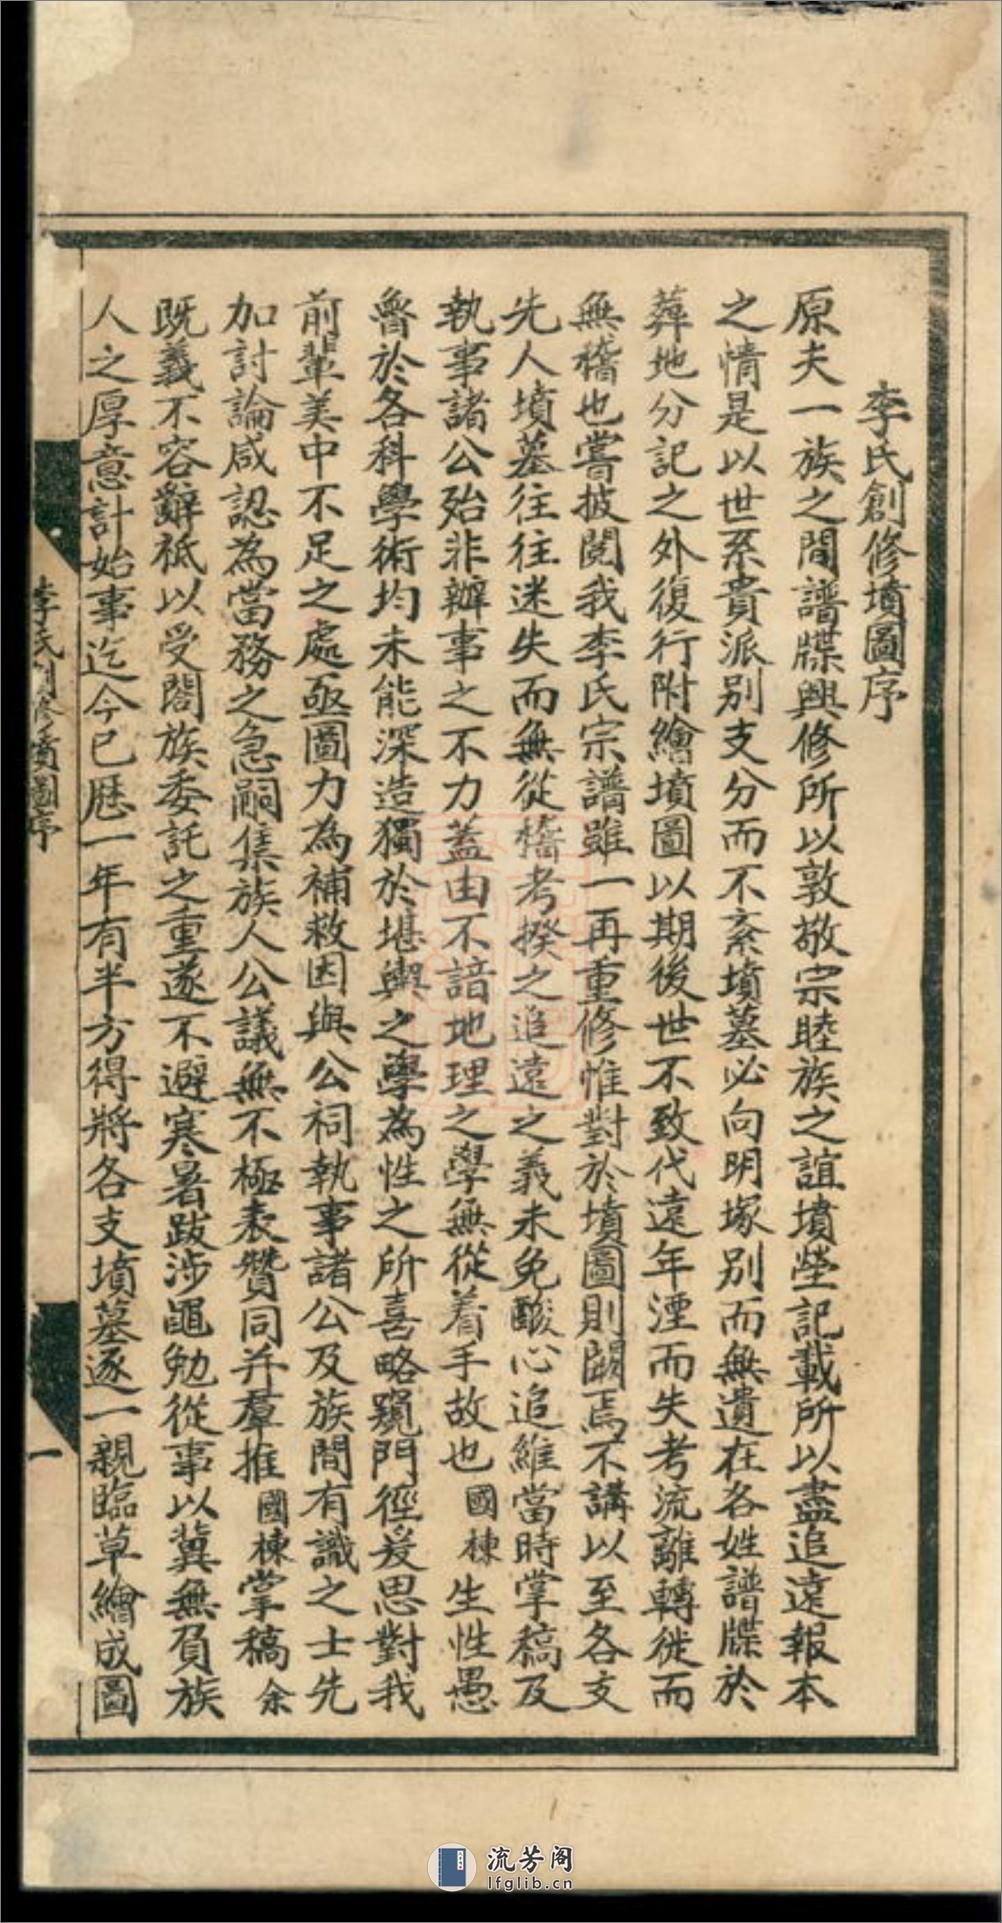 李氏創修墳圖序
原夫一族之間譜牒興修所以敦敬宗睦族之誼墳塋記載所以盡追遠報本
之情是以世系貴派別支分而不紊墳墓必向明塚別而無遺在各姓譜牒於
葬地分記之外復行附繪墳圖以期後世不致代遠年湮而失考流離轉徙而
無稽也嘗披閱我李氏宗譜雖一再重修惟對於墳圖則闕焉不講以至各支
先人墳墓往往迷失而無從稽考揆之追遠之義未免酸心追維當時掌稿及
執事諸公殆非辦事之不力蓋由不諳地理之學無從着手故也國棟生性愚
魯於各科學術均未能深造獨於堪輿之學為性之所喜略窺門徑爰思對我
前輩美中不足之處亟圖力為補救因與公祠執事諸公及族間有識之士先
加討論咸認為當務之急嗣集族人公議無不極表贊同并羣推國棟掌稿余
既義不容辭祇以受閤族委託之重遂不避寒暑跋涉黽勉從事以冀無負族
人之厚意計始事迄今已歷一年有半方得將各支墳墓逐一親臨草繪成圖
李氏創修墳圖序
一
流芳阁
lfglib.cn